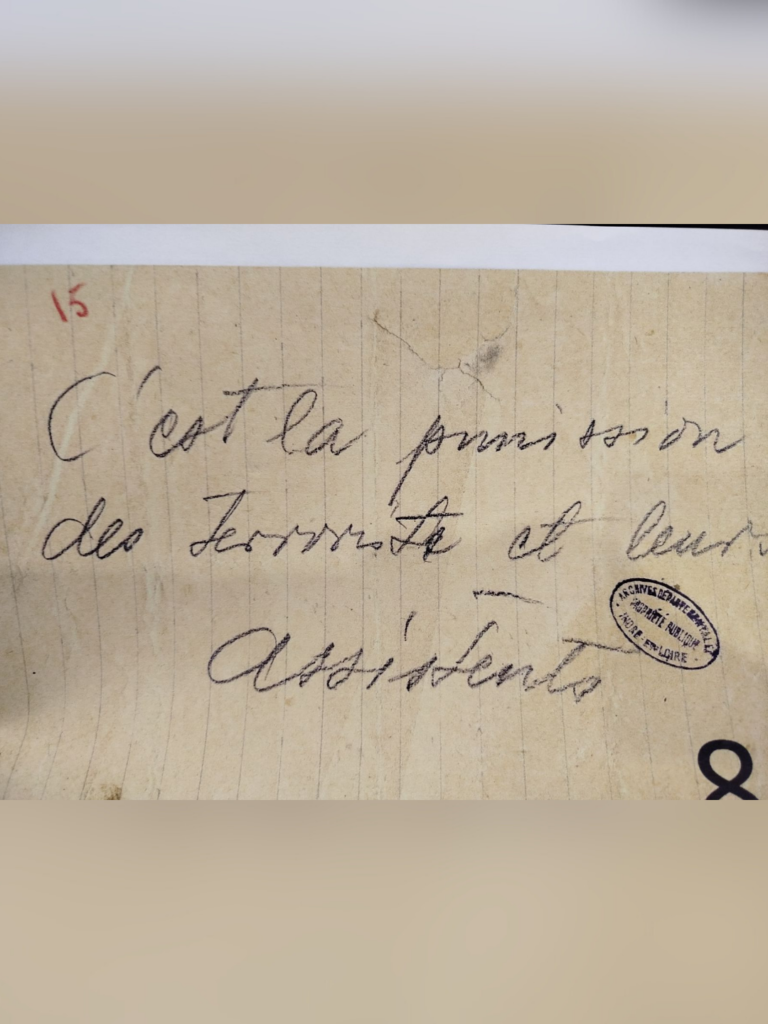 15
C'est la punission
des Terroriste et leurs
assistents
ARCHIVES DÉPARTEMENTALES
PROPRIÉTÉ PUBLIQUE
INDRE-ET-LOIRE
8